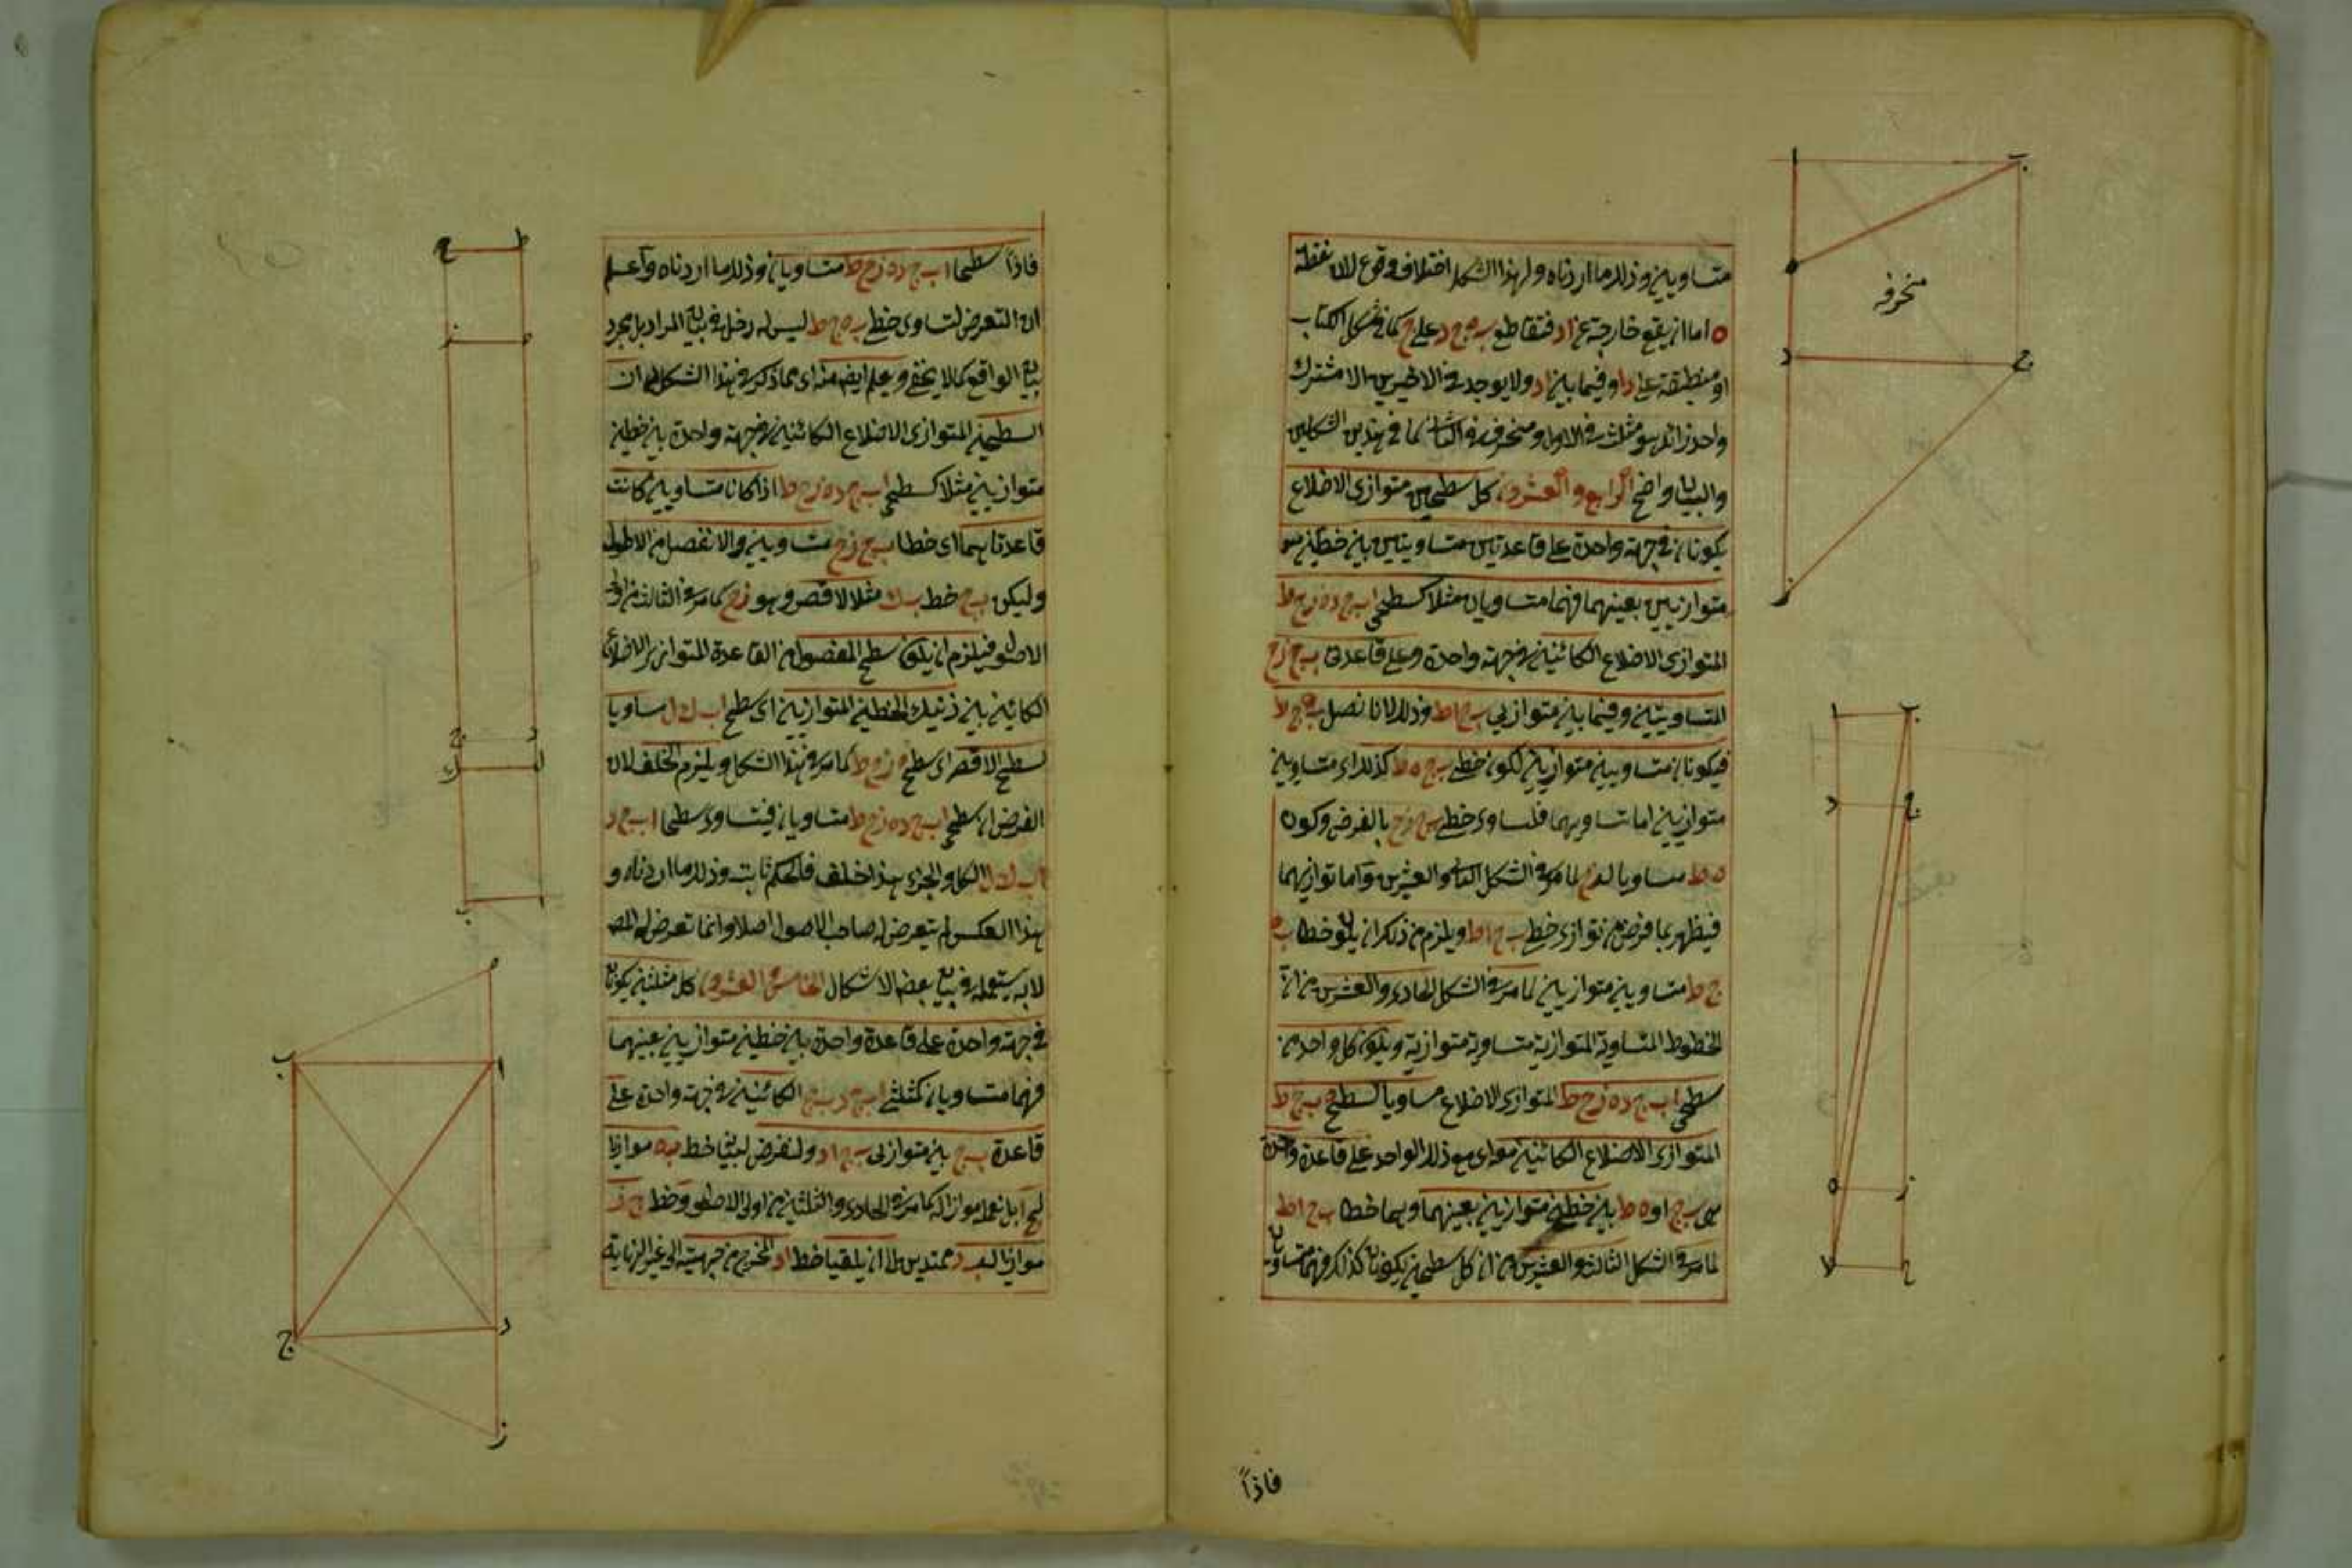 متساويين وذلك ما اردناه ولهذا الشكل اختلاف وقوع لان نقطة
ه اما ان يقع خارجة عن اد فتقاطع به ج د على ح كما في شكل الكتاب
او منطبقة على د او فيما بين اد ولا يوجد في الاخيرين الا مشترك
واحد زائد هو مثلث في الاول ومنحرف في الثاني كما في هذين الشكلين
والبيان واضح الرابع والعشرون كل سطحين متوازي الاضلاع
يكونان في جهة واحدة على قاعدتين متساويتين بين خطين
متوازيين بعينهما فهما متساويان مثلا كسطحي اب ج د ه ز ح ط
المتوازي الاضلاع الكائنين في جهة واحدة وعلى قاعدتي ب ج ز ح
المتساويتين وفيما بين متوازيي ب ح اط وذلك لانا نصل ب ه ج ط
فيكونان متساويين متوازيين لكون خطي ب ج ه ط كذلك اي متساويين
متوازيين اما تساويهما فلتساوي خطي ب ج ز ح بالفرض وكون
ه ط مساويا لزح لما مر في الشكل الثاني والعشرين واما توازيهما
فيظهر بما فرض من توازي خطي ب ح اط ويلزم من ذلك ان يكون خطا ب ه
ج ط متساويين متوازيين لما مر في الشكل الحادي والعشرين من ان
الخطوط المتساوية المتوازية متساوية متوازية ويكون كل واحد من
سطحي اب ج د ه ز ح ط المتوازي الاضلاع مساويا لسطح ه ب ج ط
المتوازي الاضلاع الكائنين هو اي مع ذلك الواحد على قاعدة واحدة
هي ب ج او ه ط بين خطين متوازيين بعينهما وهما خطا ب ح اط
لما مر في الشكل الثالث والعشرين من ان كل سطحين يكونان كذلك فهما متساويان
فاذاً
منحرفه
فاذاً سطحا اب ج د ه ز ح ط متساويان وذلك ما اردناه واعلم
ان التعرض لتساوي خطي ب ه ج ط ليس له دخل في بيان المراد بل مجرد
بيان الواقع كما لا يخفى ويعلم ايضا منه اي مما ذكر في هذا الشكل ان
السطحين المتوازي الاضلاع الكائنين في جهة واحدة بين خطين
متوازيين مثلا كسطحي اب ج د ه ز ح ط اذا كانا متساويين كانت
قاعدتاهما اي خطا ب ج ز ح متساويين والا نفصل من الاطول
وليكن ب ج خط ب ك مثلا الاقصر وهو ز ح كما مر في الثالث من اولى
الاصول فيلزم ان يكون سطح المفصول من القاعدة المتوازي الاضلاع
الكائن بين ذينك الخطين المتوازيين اي سطح اب ك ل مساويا
لسطح الاقصر اي سطح ه ز ح ط كما مر في هذا الشكل ويلزم الخلف لان
الفرض ان سطحي اب ج د ه ز ح ط متساويان فيتساوي سطحا اب ج د
اب ك ل الكل والجزء هذا خلف فالحكم ثابت وذلك ما اردناه و
هذا العكس لم يتعرض له صاحب الاصول اصلا وانما تعرض له المص
لانه يستعمله في بيان بعض الاشكال الخامس والعشرون كل مثلثين يكونان
في جهة واحدة على قاعدة واحدة بين خطين متوازيين بعينهما
فهما متساويان كمثلثي اب ج د ب ج الكائنين في جهة واحدة على
قاعدة ب ج بين متوازيي ب ج اد ولنفرض لبيانه خط ب ه موازيا
لج ا بل نعمله موازيا له كما مر في الحادي والثلثين من اولى الاصول وخط ج ز
موازيا لب د ممتدين الى ان يلقيا خط اد المخرج من جهتيه الى غير النهاية